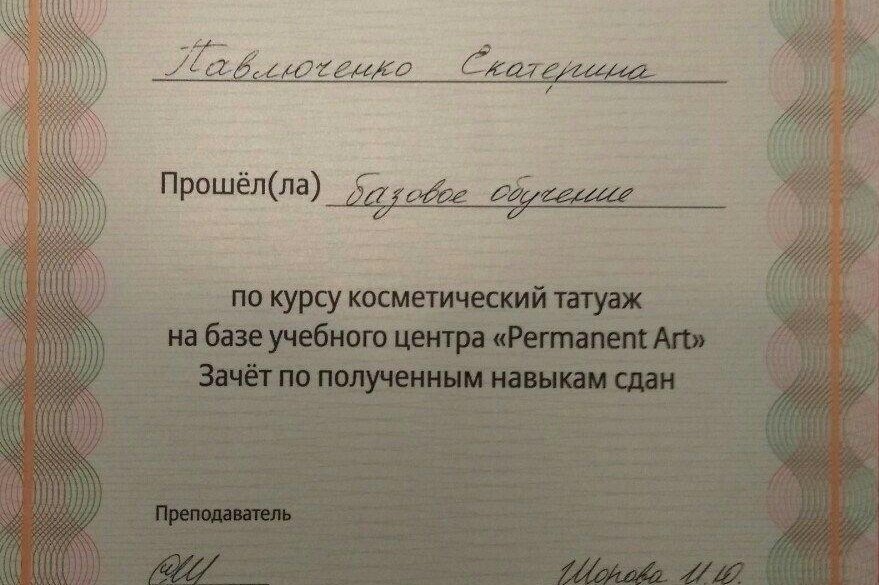 Павлюченко Екатерина
Прошёл(ла) базовое обучение
по курсу косметический татуаж
на базе учебного центра «Permanent Art»
Зачёт по полученным навыкам сдан
Преподаватель
Шорова И.Ю.